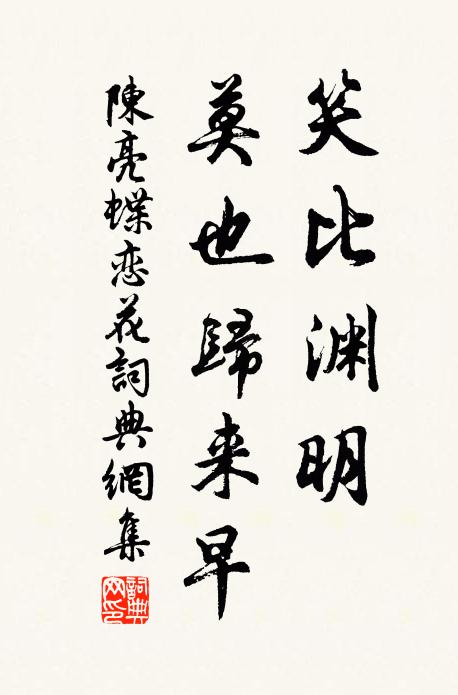 笑比渊明
莫也歸来早
陳亮蝶恋花詞典網集
詞典網印